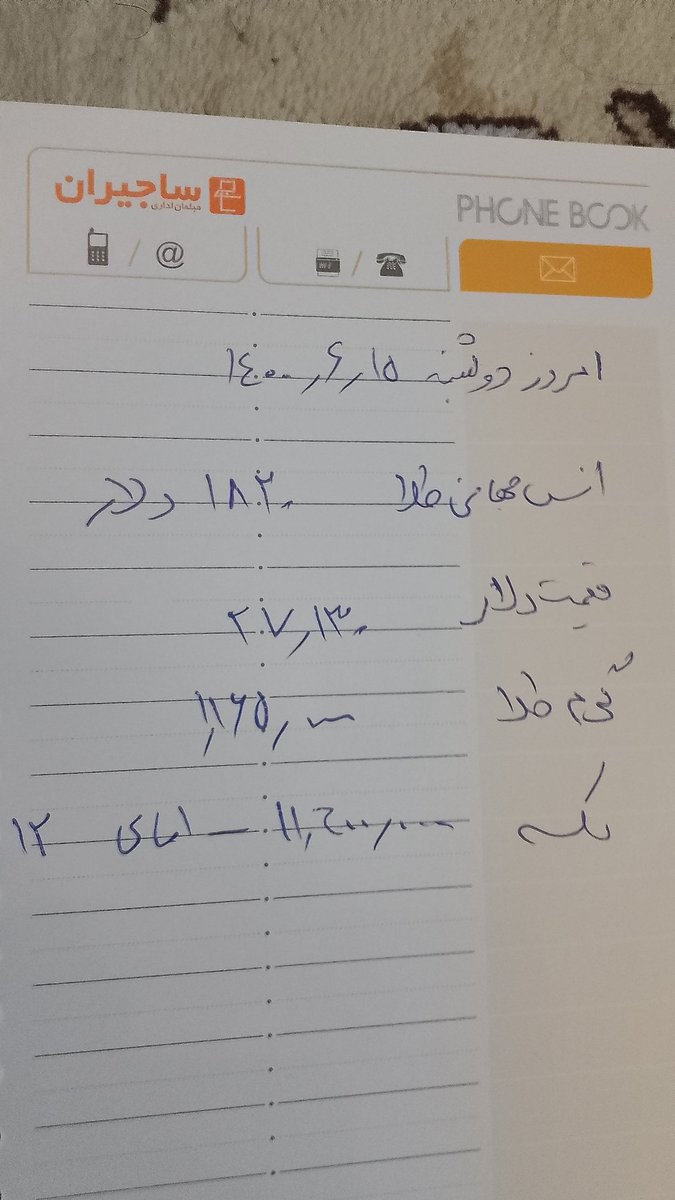 ساجیران
مبلمان اداری
PHONE BOOK
@ /
/
امروز دوشنبه ۱۴۰۰٫۶٫۱۵
انس جهانی طلا ۱۸۲۰ دلار
قیمت دلار ۲۷٫۱۳۰
گرم طلا ۱٫۱۶۵٫۰۰۰
سکه ۱۱٫۶۰۰٫۰۰۰ — امامی ۱۲